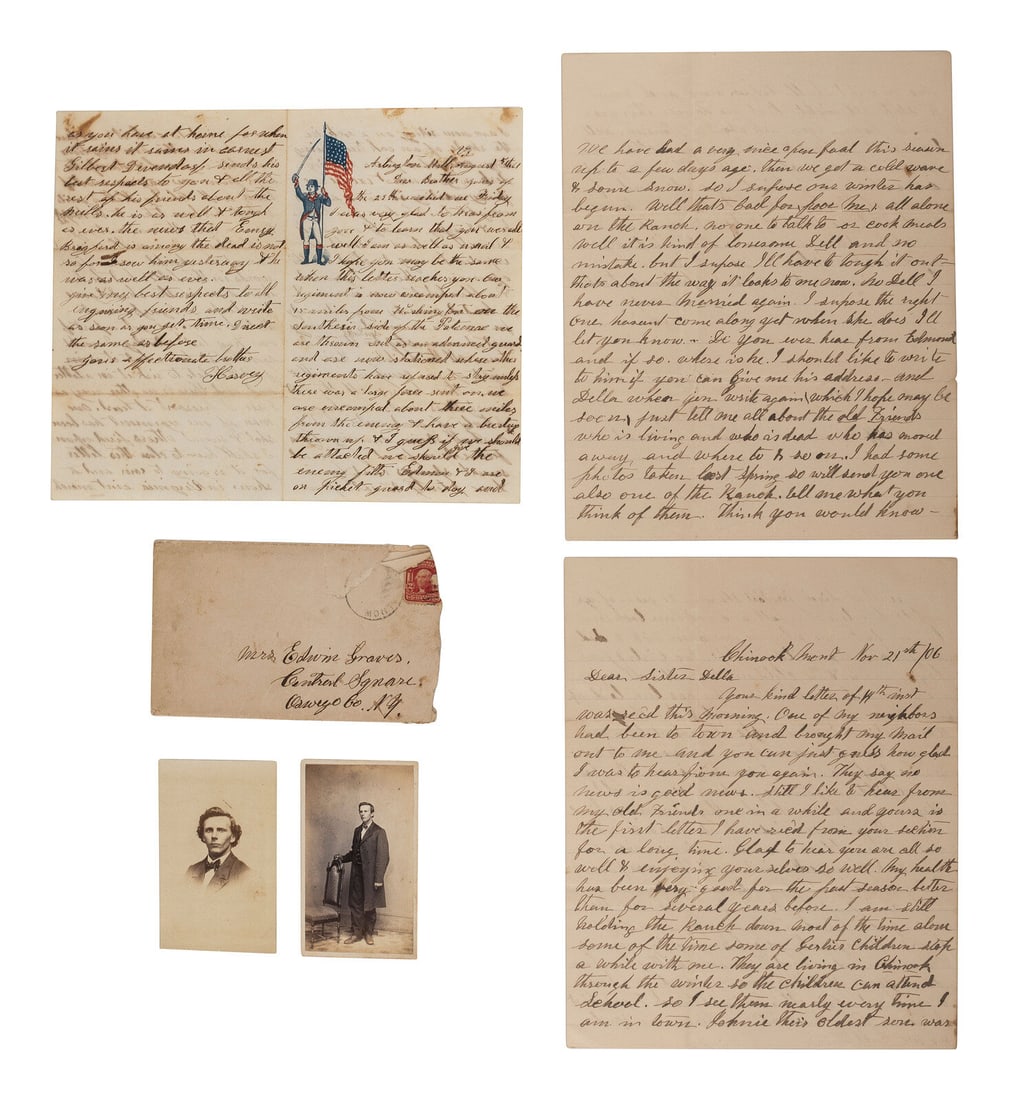 as you have at home for when
it rains it rains in earnest
Gilbert sends his
best respects to you & all the
rest of his friends about the
mills. he is as well & tough
as ever. the news that
is among the dead is not
so for I saw him yesterday & he
was as well as ever.
give my best respects to all
enquiring friends and write
as soon as you get time. Direct
the same as before
yours affectionate brother
Harvey
Arlington Mill August
Dear Brother yours of
the 25th reached me Friday
I was very glad to hear from
you & to learn that you were all
well I am as well as usual &
I hope you may be the same
when this letter reaches you. Our
regiment is now encampt about
miles from Washington over the
Southern side of the Potomac we
are thrown out as an advanced guard
and are now stationed where other
regiments have refused to stay unless
there was a large force sent on we
are encampt about three miles
from the enemy & have a
thrown up. & I guess if we should
be attacked we should the
enemy fits Edwin & I are
on picket guard to day and
We have had a very nice open faal this season
up to a few days ago. then we got a cold wave
& some snow. so I supose our winter has
begun. Well thats bad for poor me, all alone
on the Ranch. no one to talk to or cook meals
well it is kind of lonesome Dell and no
mistake. but I supose I'll have to tough it out-
thats about the way it looks to me now. No Dell I
have never married again. I supose the right
one hasent come along yet when she does I'll
let you know - Do you ever hear from Edmond
and if so. where is he. I should like to write
to him if you can give me his address - and
Della when you write again, which I hope may be
soon, just tell me all about the old Friends
who is living and who is dead who has moved
away, and where to & so on. I had some
photos taken last spring so will send you one
also one of the Ranch. tell me what you
think of them. Think you would know -
Mrs Edwin Graves.
Central Square.
Oswego Co. N.Y.
Chinook Mont Nov 21st /06
Dear Sister Della
Your kind letter of 14th inst
was recd this morning. One of my neighbors
had been to town and brought my mail
out to me and you can just guess how glad
I was to hear from you again. They say no
news is good news. still I like to hear from
my old Friends one in a while and yours is
the first letter I have rec'd from your section
for a long time. Glad to hear you are all so
well & enjoying your selves so well. My health
has been very good for the past season better
than for several years before. I am still
holding the Ranch down most of the time alone
some of the time some of Gertie's children stop
a while with me. They are living in Chinook
through the winter so the children can attend
School. so I see them nearly every time I
am in town. Johnie their oldest son was